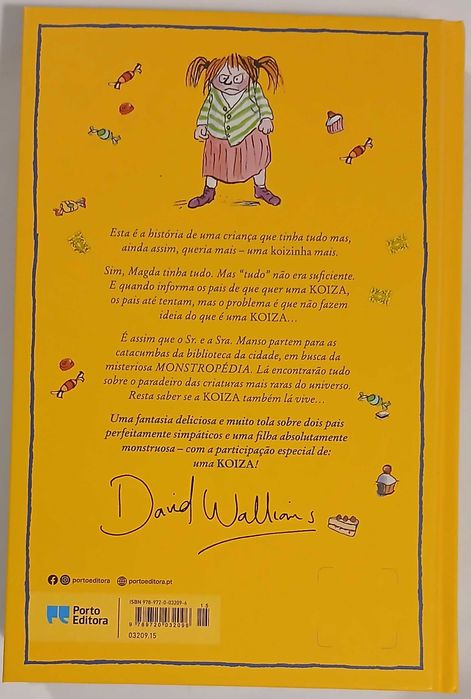 Esta é a história de uma criança que tinha tudo mas,
ainda assim, queria mais – uma koizinha mais.
Sim, Magda tinha tudo. Mas “tudo” não era suficiente.
E quando informa os pais de que quer uma KOIZA,
os pais até tentam, mas o problema é que não fazem
ideia do que é uma KOIZA...
É assim que o Sr. e a Sra. Manso partem para as
catacumbas da biblioteca da cidade, em busca da
misteriosa MONSTROPÉDIA. Lá encontrarão tudo
sobre o paradeiro das criaturas mais raras do universo.
Resta saber se a KOIZA também lá vive...
Uma fantasia deliciosa e muito tola sobre dois pais
perfeitamente simpáticos e uma filha absolutamente
monstruosa – com a participação especial de:
uma KOIZA!
David Walliams
portoeditora portoeditora.pt
Porto
Editora
ISBN 978-972-0-03209-6
15
9 789720 032096
03209.15